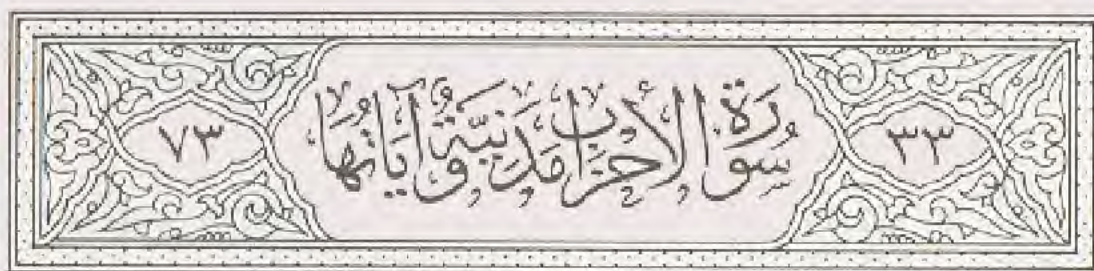 ٣٣ سُورَةُ الأَحْزَابِ مَدَنِيَّةٌ وَآيَاتُهَا ٧٣